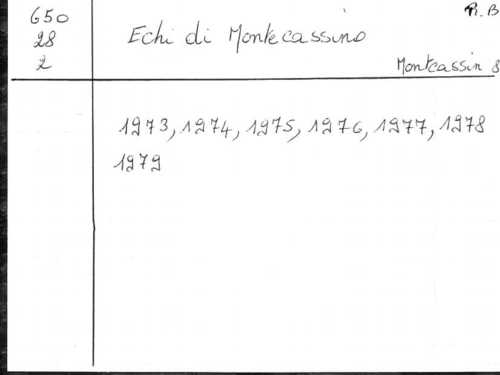 650
28
2
Echi di Montecassino
R. B
Montcassin 8
1973, 1974, 1975, 1976, 1977, 1978
1979